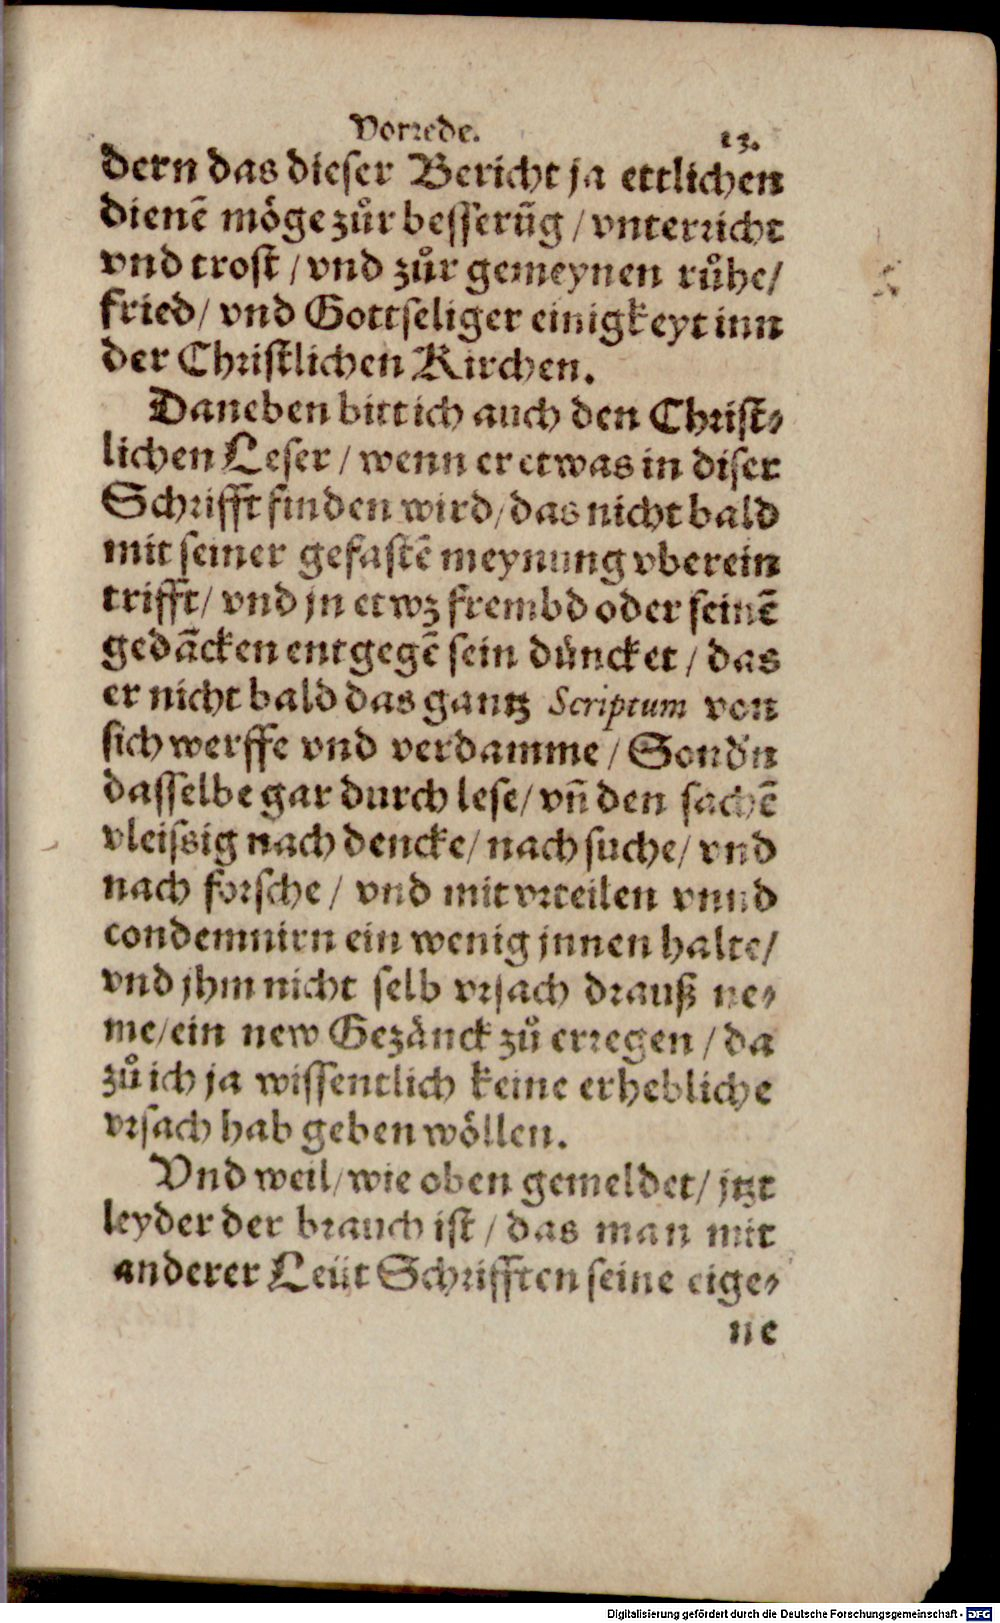 Vorrede. 13.
dern das dieser Bericht ja ettlichen
dienē möge zůr besserūg / vnterricht
vnd trost / vnd zůr gemeynen růhe /
fried / vnd Gottseliger einigkeyt inn
der Christlichen Kirchen.
Daneben bitt ich auch den Christ⸗
lichen Leser / wenn er etwas in diser
Schrifft finden wird / das nicht bald
mit seiner gefastē meynung vberein
trifft / vnd jn etwz frembd oder seinē
gedācken entgegē sein düncket / das
er nicht bald das gantz Scriptum von
sich werffe vnd verdamme / Sond'n
dasselbe gar durch lese / vn̄ den sachē
vleissig nach dencke / nach suche / vnd
nach forsche / vnd mit vrteilen vnnd
condemnirn ein wenig jnnen halte /
vnd jhm nicht selb vrsach drauß ne⸗
me / ein new Gezänck zů erregen / da
zů ich ja wissentlich keine erhebliche
vrsach hab geben wöllen.
Vnd weil / wie oben gemeldet / jtzt
leyder der brauch ist / das man mit
anderer Leüt Schrifften seine eige⸗
ne
Digitalisierung gefördert durch die Deutsche Forschungsgemeinschaft - DFG